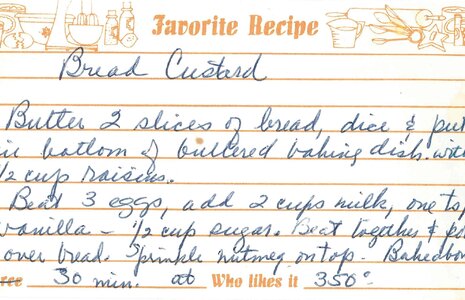 Favorite Recipe
Bread Custard
Butter 2 slices of bread, dice & put
bottom of buttered baking dish with
1/2 cup raisins.
Beat 3 eggs, add 2 cups milk, one tsp
vanilla - 1/2 cup sugar. Beat together &
over bread. Sprinkle nutmeg on top.
30 min. at Who likes it 350°